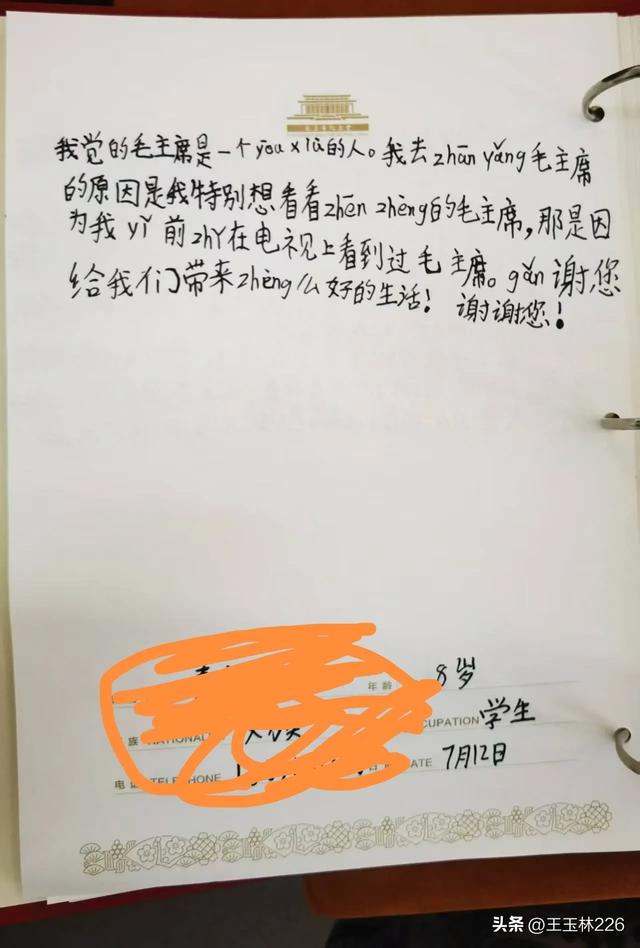 我觉的毛主席是一个yōu xiù的人。我去zhān yǎng毛主席
的原因是我特别想看看zhēn zhèng的毛主席，那是因
为我yǐ前zhǐ在电视上看到过毛主席。gǎn谢您
给我们带来zhèng么好的生活！谢谢您！
年龄 8岁
族 NATIONAL CUPATION 学生
电 TELEPHONE DATE 7月12日
头条 @王玉林226